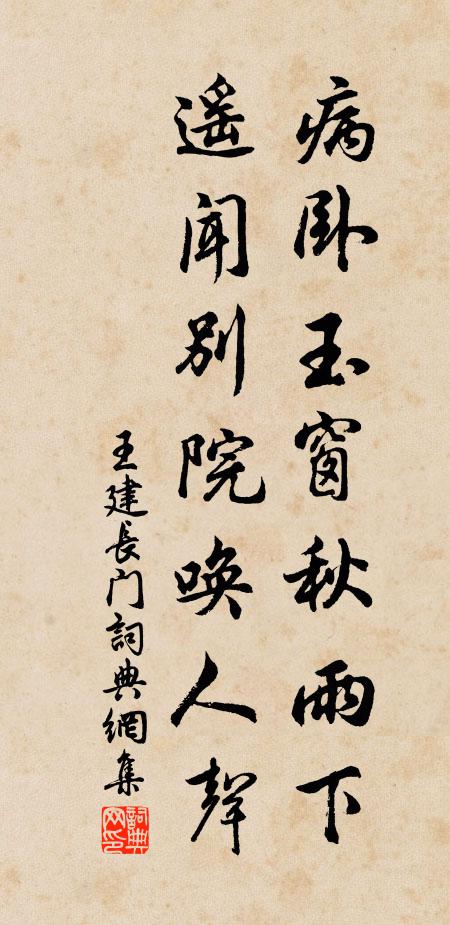 病卧玉窗秋雨下
遥闻别院唤人声
王建长门詞典網集
詞典网印